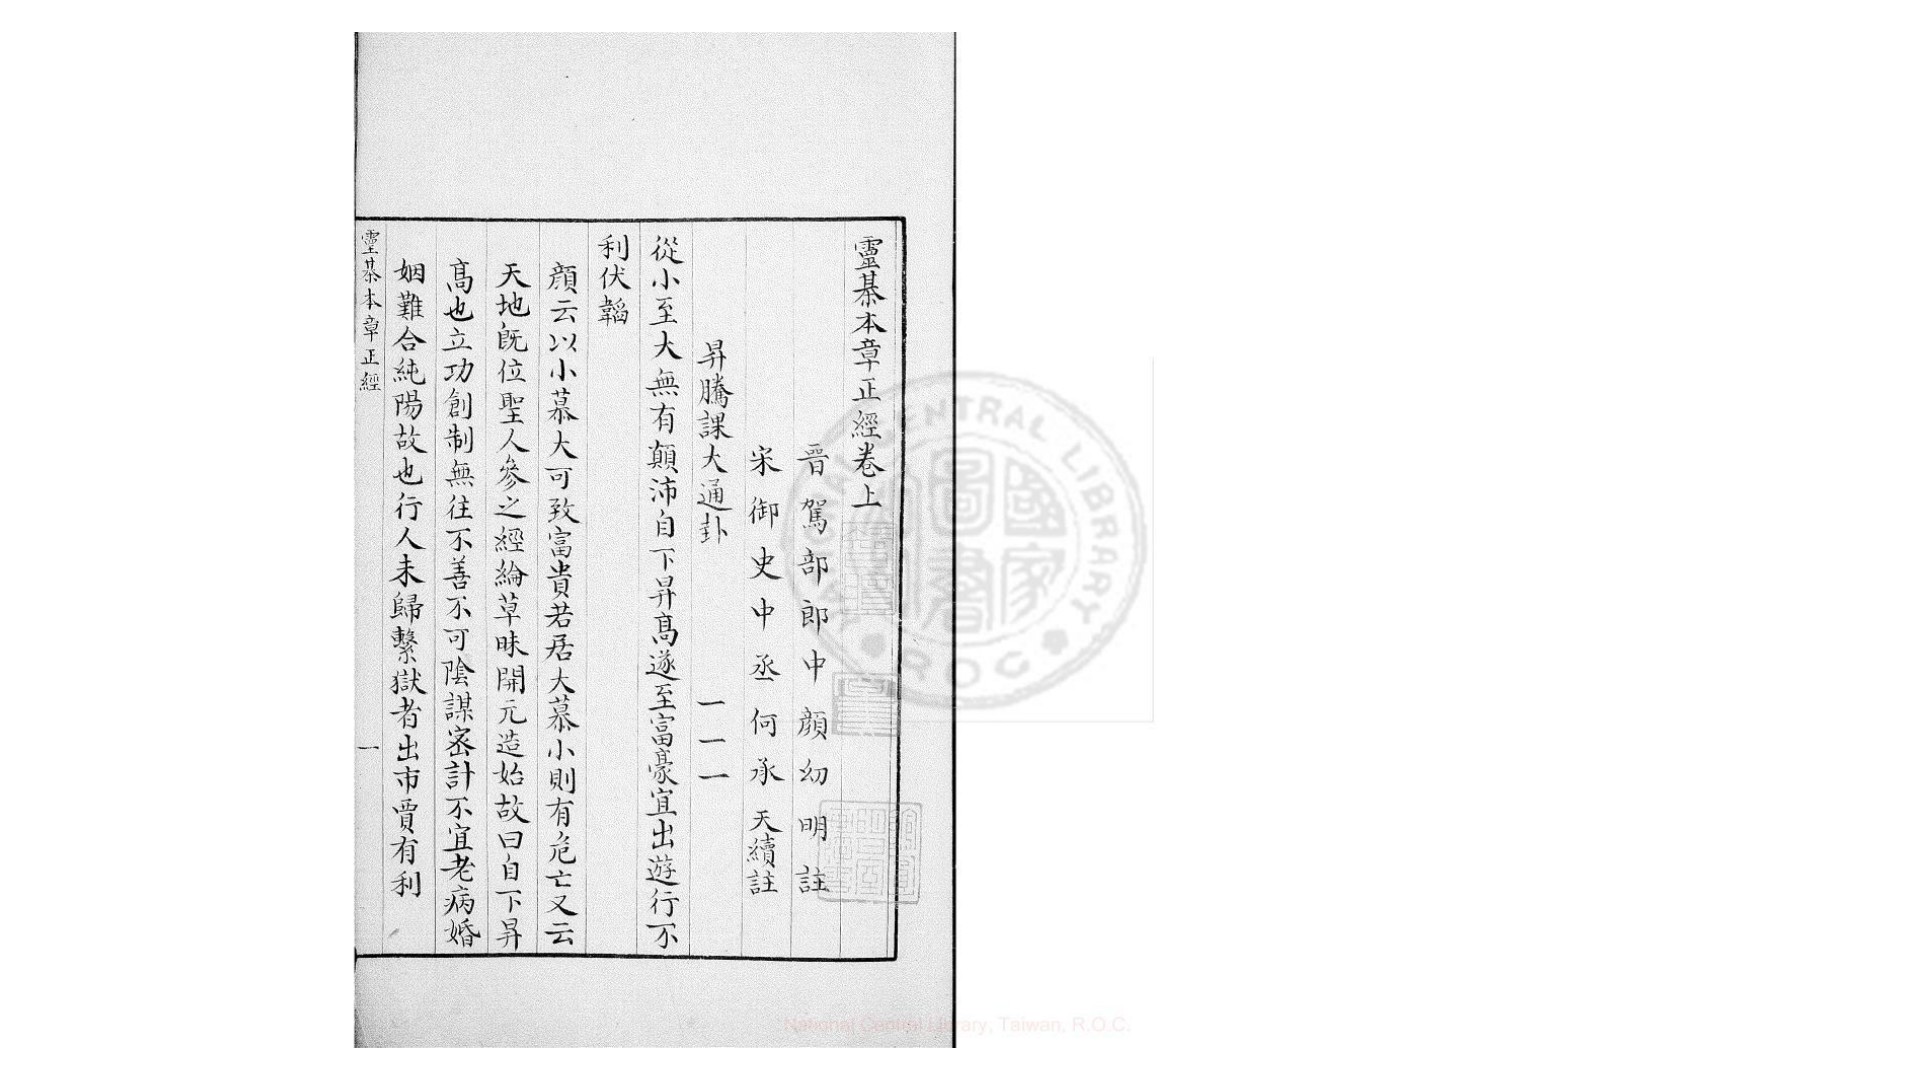 靈棊本章正經卷上
晉駕部郎中顔幼明註
宋御史中丞何承天續註
昇騰課大通卦 一一一
從小至大無有顛沛自下昇髙遂至富豪宜出遊行不
利伏韜
顔云以小慕大可致富貴若居大慕小則有危亡又云
天地既位聖人參之經綸草昧開元造始故曰自下昇
髙也立功創制無往不善不可陰謀密計不宜老病婚
姻難合純陽故也行人未歸繫獄者出市賈有利
靈棊本章正經
一
國家圖書館
NATIONAL CENTRAL LIBRARY
R.O.C
National Central Library, Taiwan, R.O.C.